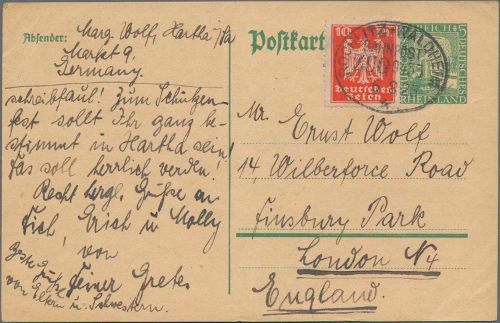 Absender: Marg. Wolf, Hartha i/Sa
Markt 9,
Germany.
schreibfaul! Zum Schützen-
fest sollt Ihr ganz be-
stimmt in Hartha sein!
Das soll herrlich werden!
Recht herzl. Grüße an
Dich, Erich u. Molly
von
Deiner Grete.
Beste Grüße
von Eltern u. Schwestern.
Postkart
10
Deutsches
Reich
WALDHEIM
REICH
5
DEUTSCHES
RHEINLAND
Mr. Ernst Wolf
14, Wilberforce Road
Finsbury Park
London N4
England.